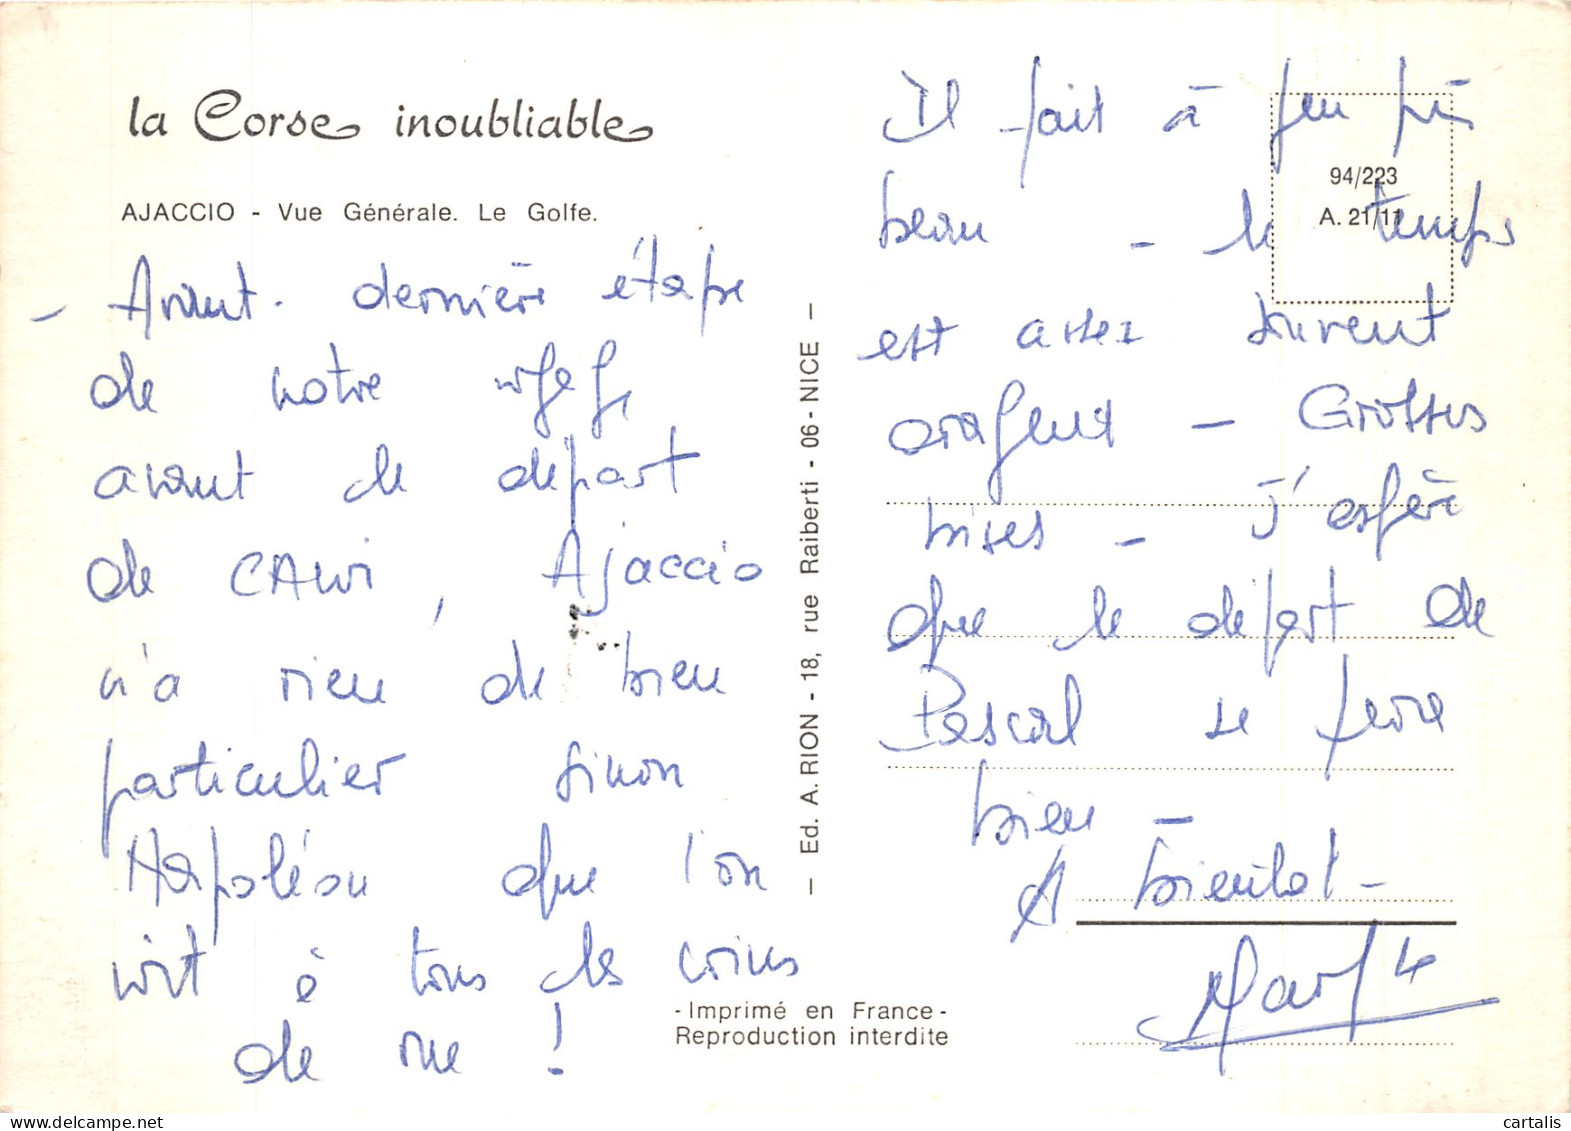 la Corse inoubliable
AJACCIO - Vue Générale. Le Golfe.
- Avant-dernière étape
de notre
avant le départ
de CALVI, Ajaccio
n'a rien de bien
particulier sinon
Napoléon que l'on
voit à tous les coins
de rue !
- Ed. A. RION - 18, rue Raiberti - 06 - NICE -
- Imprimé en France -
Reproduction interdite
94/223
A. 21/11
Il fait à peu près
beau - le temps
est assez souvent
orageux - Grosses
bises - J'espère
que le départ de
Pascal se
bien -
A bientôt -